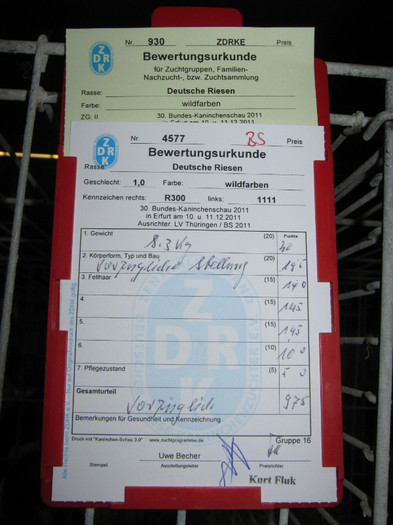 Nr. 930 ZDRKE Preis
Z
DRK
Bewertungsurkunde
für Zuchtgruppen, Familien-
Nachzucht-, bzw. Zuchtsammlung
Rasse: Deutsche Riesen
Farbe: wildfarben
ZG: II 30. Bundes-Kaninchenschau 2011
in Erfurt am 10. u. 11.12.2011
Nr. 4577 BS Preis
Z
DRK
Bewertungsurkunde
Rasse: Deutsche Riesen
Geschlecht: 1,0 Farbe: wildfarben
Kennzeichen rechts: R300 links: 1111
30. Bundes-Kaninchenschau 2011
in Erfurt am 10. u. 11.12.2011
Ausrichter: LV Thüringen / BS 2011
1. Gewicht (20) Punkte
8.3 Kg 20
2. Körperform, Typ und Bau (20)
Vorzügliche Stellung 19 5
3. Fellhaar (15) 14 0
4. (15) 14 5
5. (15) 14 5
6. (10) 10 0
7. Pflegezustand (5) 5 0
Gesamturteil
vorzüglich 97 5
Bemerkungen für Gesundheit und Kennzeichnung
Druck mit "Kaninchen-Schau 3.0" www.zuchtprogramme.de Gruppe 16
Uwe Becher
Stempel Ausstellungsleiter Preisrichter
Kurt Fluk